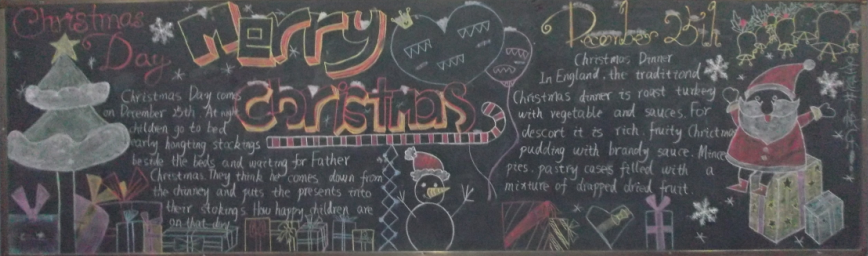 Christmas
Day
Merry
Christmas
December 25th
Christmas Day comes
on December 25th. At night
children go to bed
early hangting stockings
beside the beds and waiting for Father
Christmas. They think he comes down from
the chimey and puts the presents into
their stokings. How happy children are
on that day.
Christmas Dinner
In England, the traditional
Christmas dinner is roast turkey
with vegetable and sauces. For
descort it is rich, fruity Christmas
pudding with brandy sauce. Mince
pies, pastry cases filled with a
mixture of chopped dried fruit.